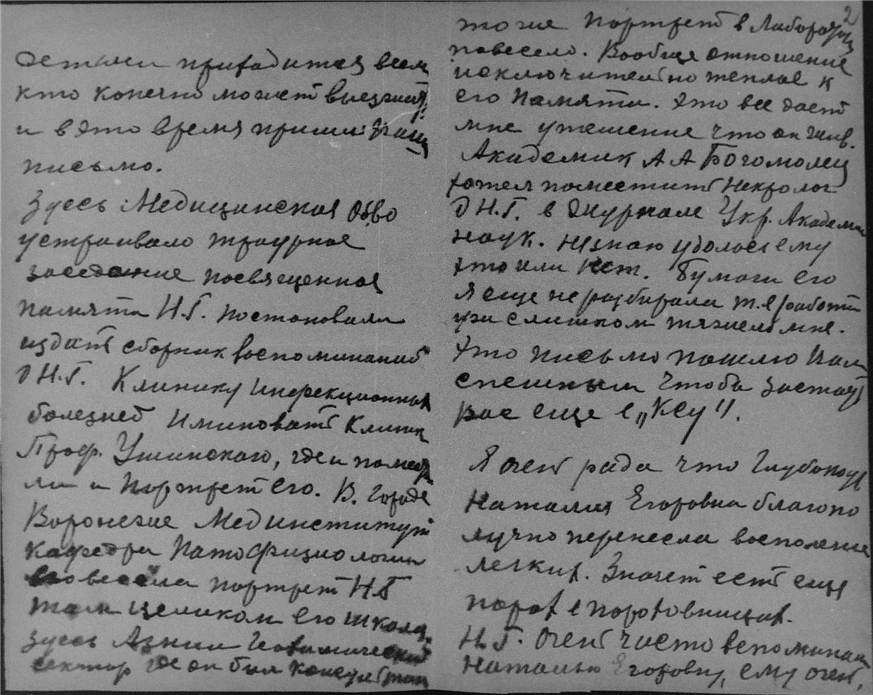 кто конечно может
и в это время пришли
письмо.
Здесь Медицинская Об-во
устраивало траурное
заседание посвященная
памяти Н.Г. постановили
издать сборник воспоминаний
о Н.Г. Клинику Инфекционная
болезней Именовать Клиник
Проф. Ушинского, где и
ли и портрет его. В городе
Воронеже Мединститут
Кафедра Патофизиологии
портрет Н.Г.
там целиком его школа.
здесь Азнии
сектор где он был
2
тоже портрет в
повесело. Вообще отношение
исключительно теплое к
его памяти. Это все дает
мне утешение что он жив.
Академик А А Богомолец
хотел поместить Некролог
о Н.Г. в Журнале Укр. Академи
Наук. Незнаю удалось ему
это или нет. Бумаги его
я еще не разбирала т.я работ
уж слишком тяжело мне.
Это письмо пошлю Вам
спешным чтобы застать
вас еще в „Ксу“.
Я очень рада что Глубоко
Наталия Егоровна благопо
лучно перенесла восполение
легких. Значит есть еще
порох в пороховницах.
Н.Г. Очень часто вспоминал
Наталью Егоровну, ему очень,